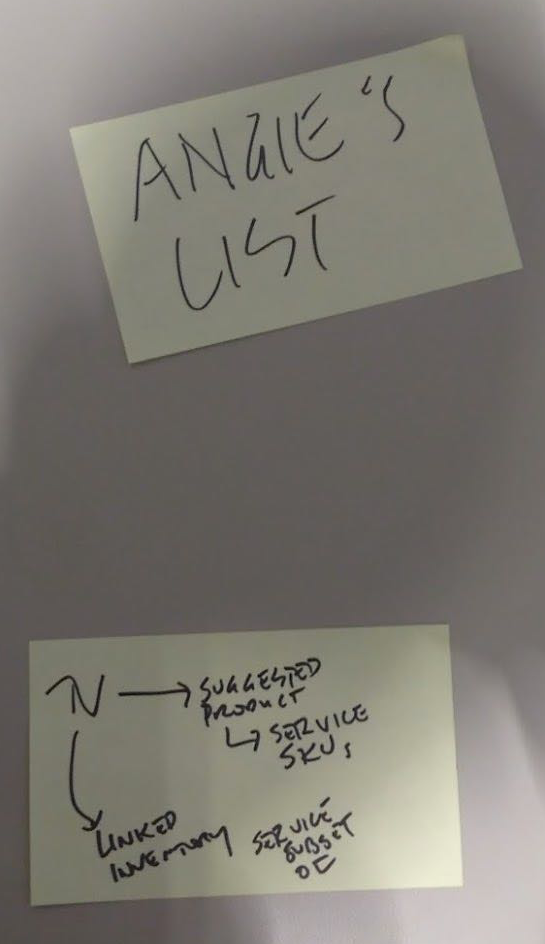 ANGIE'S
LIST
N → SUGGESTED
PRODUCT
↳ SERVICE
SKUs
LINKED
INVENTORY
SERVICE
SUBSET
OF